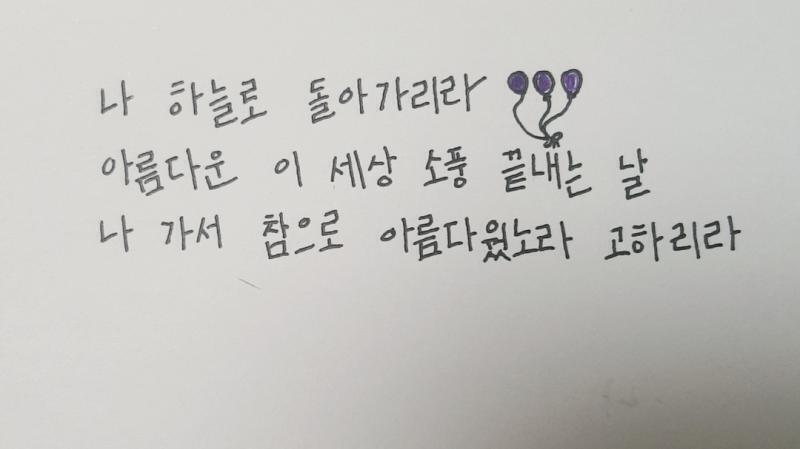 나 하늘로 돌아가리라
아름다운 이 세상 소풍 끝내는 날
나 가서 참으로 아름다웠노라 고하리라